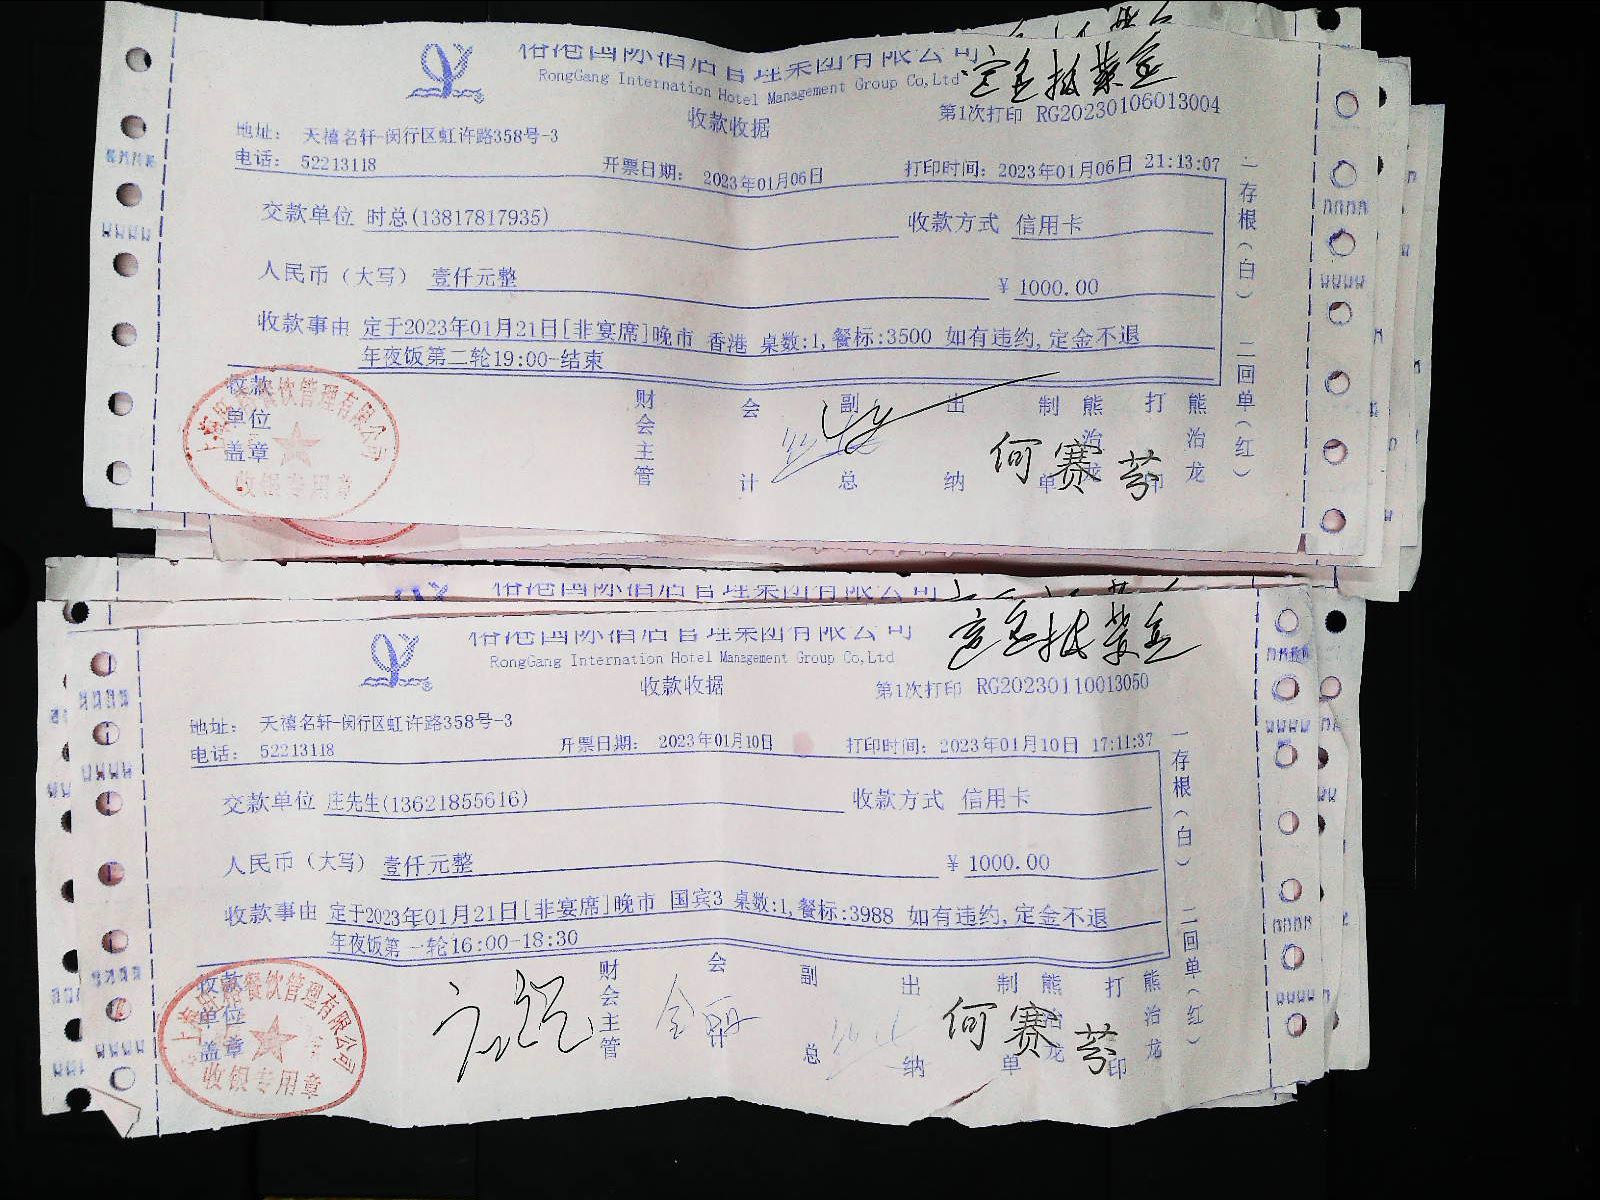 裕港国际酒店管理集团有限公司
RongGang Internation Hotel Management Group Co,Ltd
定金抵业金
收款收据
第1次打印 RG20230106013004
地址: 天禧名轩-闵行区虹许路358号-3
电话: 52213118 开票日期: 2023年01月06日 打印时间: 2023年01月06日 21:13:07
交款单位 时总(13817817935) 收款方式 信用卡
人民币(大写) 壹仟元整 ¥ 1000.00
收款事由 定于2023年01月21日[非宴席]晚市 香港 桌数:1,餐标:3500 如有违约,定金不退
年夜饭第二轮19:00-结束
收款单位盖章 财会主管 会计 副总 出纳 制单 熊治龙 打印 熊治龙
何赛芬
餐饮管理有限公司
收银专用章
一存根(白) 二回单(红)
裕港国际酒店管理集团有限公司
裕港国际酒店管理集团有限公司
RongGang Internation Hotel Management Group Co,Ltd
定金抵业金
收款收据
第1次打印 RG20230110013050
地址: 天禧名轩-闵行区虹许路358号-3
电话: 52213118 开票日期: 2023年01月10日 打印时间: 2023年01月10日 17:11:37
交款单位 庄先生(13621855616) 收款方式 信用卡
人民币(大写) 壹仟元整 ¥ 1000.00
收款事由 定于2023年01月21日[非宴席]晚市 国宾3 桌数:1,餐标:3988 如有违约,定金不退
年夜饭第一轮16:00-18:30
收款单位盖章 财会主管 会计 副总 出纳 制单 熊治龙 打印 熊治龙
何赛芬
餐饮管理有限公司
收银专用章
一存根(白) 二回单(红)